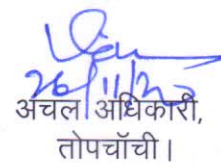 26/11/20
अचल अधिकारी,
तोपचॉची।